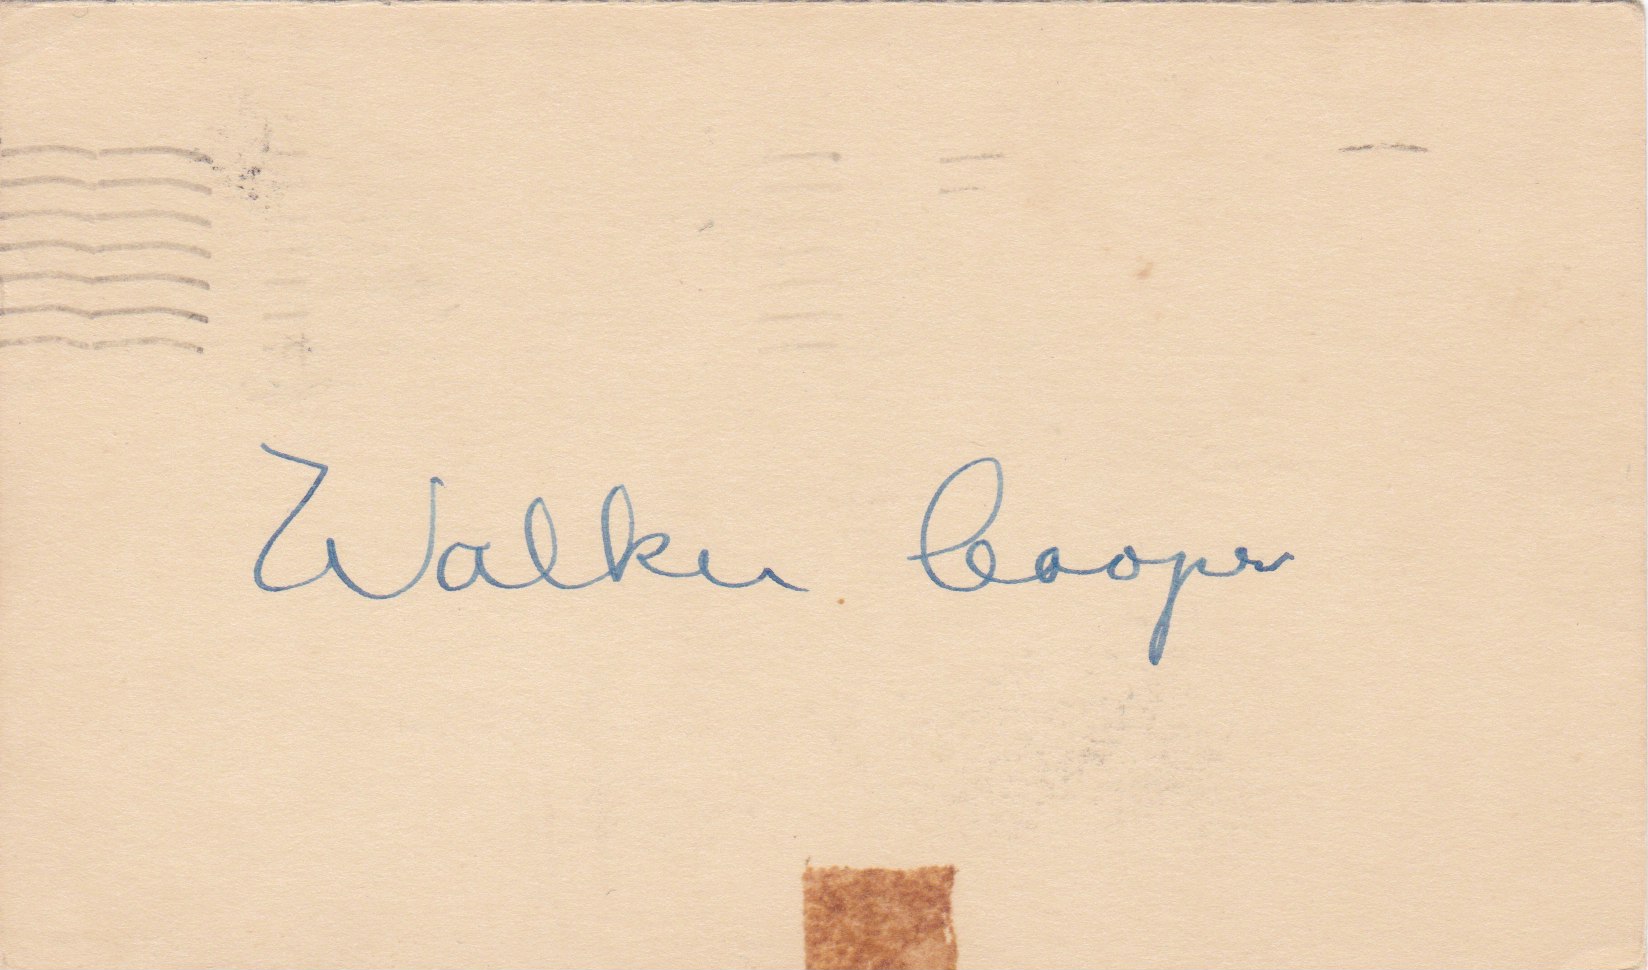 Walker Cooper